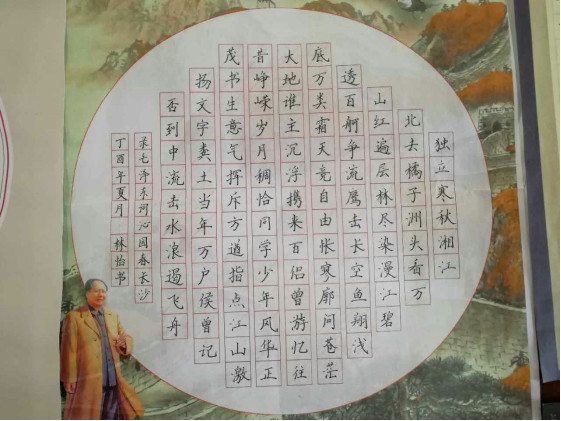 独立寒秋湘江
北去橘子洲头看万
山红遍层林尽染漫江碧
透百舸争流鹰击长空鱼翔浅
底万类霜天竞自由怅寥廓问苍茫
大地谁主沉浮携来百侣曾游忆往
昔峥嵘岁月稠恰同学少年风华正
茂书生意气挥斥方遒指点江山激
扬文字粪土当年万户侯曾记
否到中流击水浪遏飞舟
录毛泽东词沁园春长沙
丁酉年夏月 林怡书